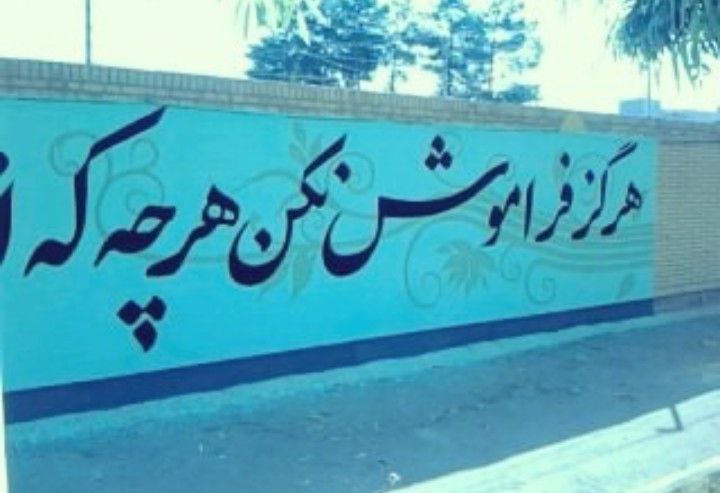 هرگز فراموش نکن هرچه که